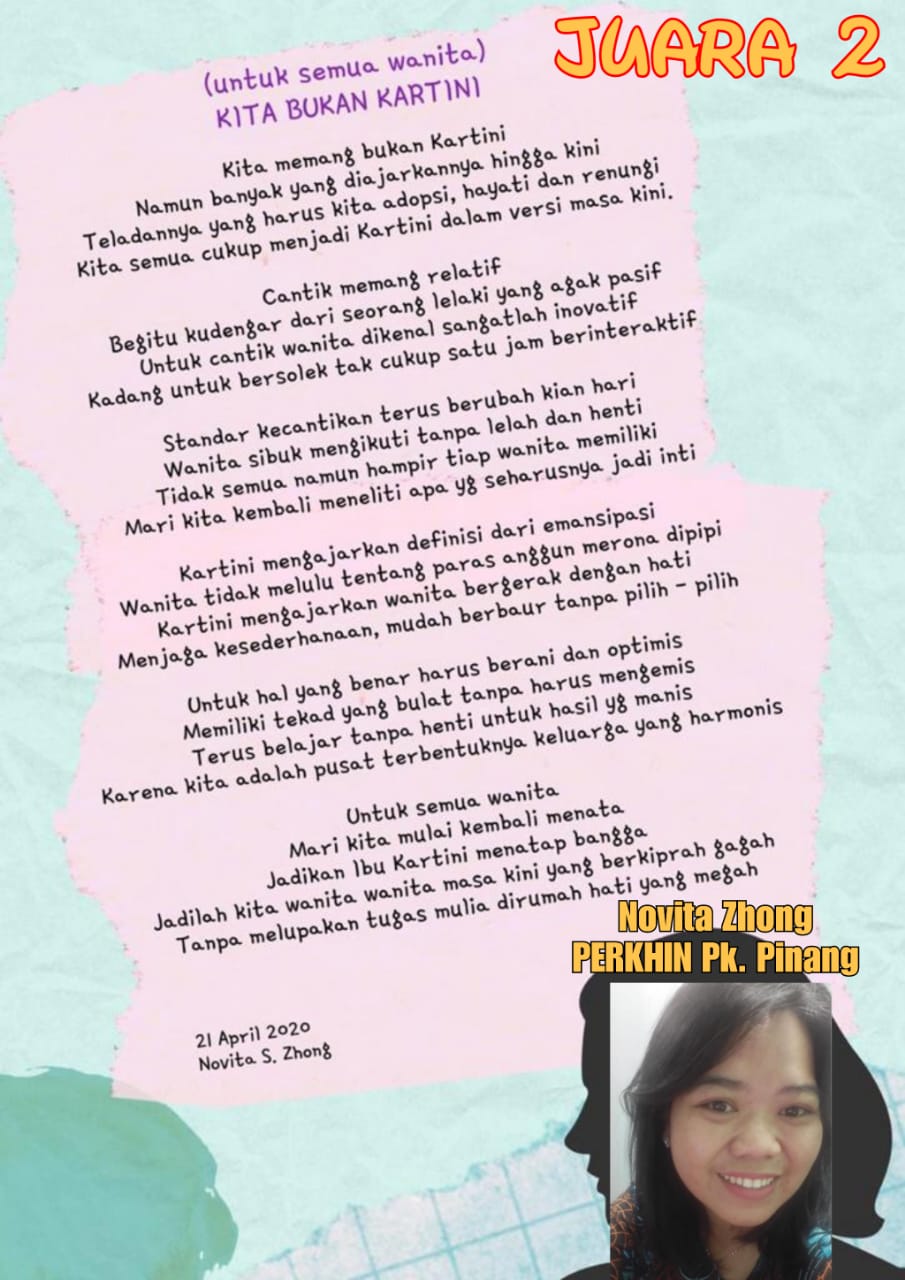 JUARA 2
(untuk semua wanita)
KITA BUKAN KARTINI
Kita memang bukan Kartini
Namun banyak yang diajarkannya hingga kini
Teladannya yang harus kita adopsi, hayati dan renungi
Kita semua cukup menjadi Kartini dalam versi masa kini.
Cantik memang relatif
Begitu kudengar dari seorang lelaki yang agak pasif
Untuk cantik wanita dikenal sangatlah inovatif
Kadang untuk bersolek tak cukup satu jam berinteraktif
Standar kecantikan terus berubah kian hari
Wanita sibuk mengikuti tanpa lelah dan henti
Tidak semua namun hampir tiap wanita memiliki
Mari kita kembali meneliti apa yg seharusnya jadi inti
Kartini mengajarkan definisi dari emansipasi
Wanita tidak melulu tentang paras anggun merona dipipi
Kartini mengajarkan wanita bergerak dengan hati
Menjaga kesederhanaan, mudah berbaur tanpa pilih - pilih
Untuk hal yang benar harus berani dan optimis
Memiliki tekad yang bulat tanpa harus mengemis
Terus belajar tanpa henti untuk hasil yg manis
Karena kita adalah pusat terbentuknya keluarga yang harmonis
Untuk semua wanita
Mari kita mulai kembali menata
Jadikan Ibu Kartini menatap bangga
Jadilah kita wanita wanita masa kini yang berkiprah gagah
Tanpa melupakan tugas mulia dirumah hati yang megah
Novita Zhong
PERKHIN Pk. Pinang
21 April 2020
Novita S. Zhong